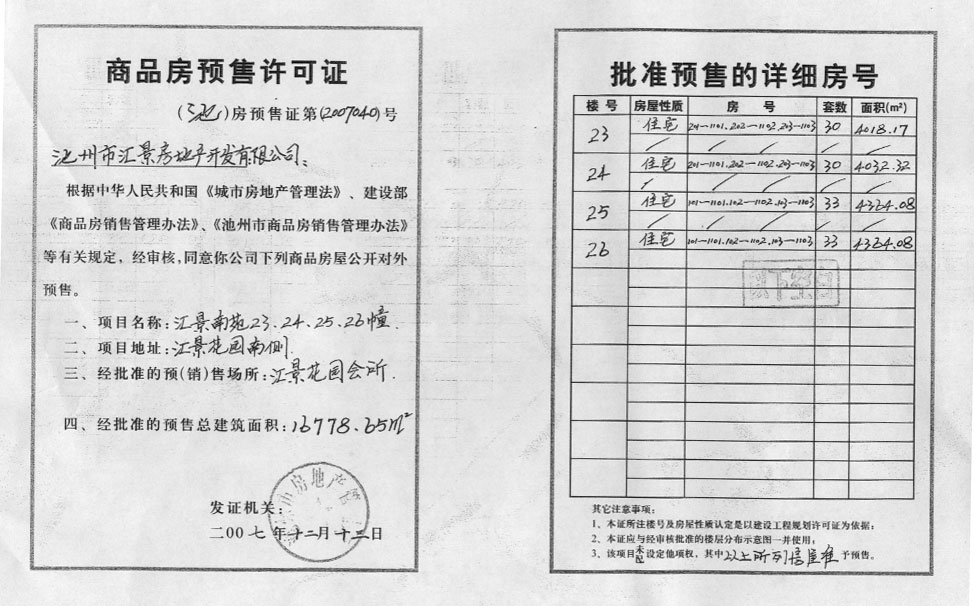 商品房预售许可证
(池)房预售证第(2007040)号
池州市汇景房地产开发有限公司:
根据中华人民共和国《城市房地产管理法》、建设部
《商品房销售管理办法》、《池州市商品房销售管理办法》
等有关规定，经审核,同意你公司下列商品房屋公开对外
预售。
一、项目名称:汇景南苑23.24.25.26幢.
二、项目地址:汇景花园南侧.
三、经批准的预(销)售场所:汇景花园会所.
四、经批准的预售总建筑面积:16778.65m²
房地产管
发证机关:
二00七年十二月十三日
批准预售的详细房号
楼号 房屋性质 房号 套数 面积(m²)
23 住宅 201—1101.202—1102.203—1103 30 4018.17
24 住宅 201—1101.202—1102.203—1103 30 4032.32
25 住宅 101—1101.102—1102.103—1103 33 4364.08
26 住宅 101—1101.102—1102.103—1103 33 4364.08
以下空白
其它注意事项:
1、本证所注楼号及房屋性质认定是以建设工程规划许可证为依据;
2、本证应与经审核批准的楼层分布示意图一并使用;
3、该项目未设定他项权，其中以上所列房屋准予预售。